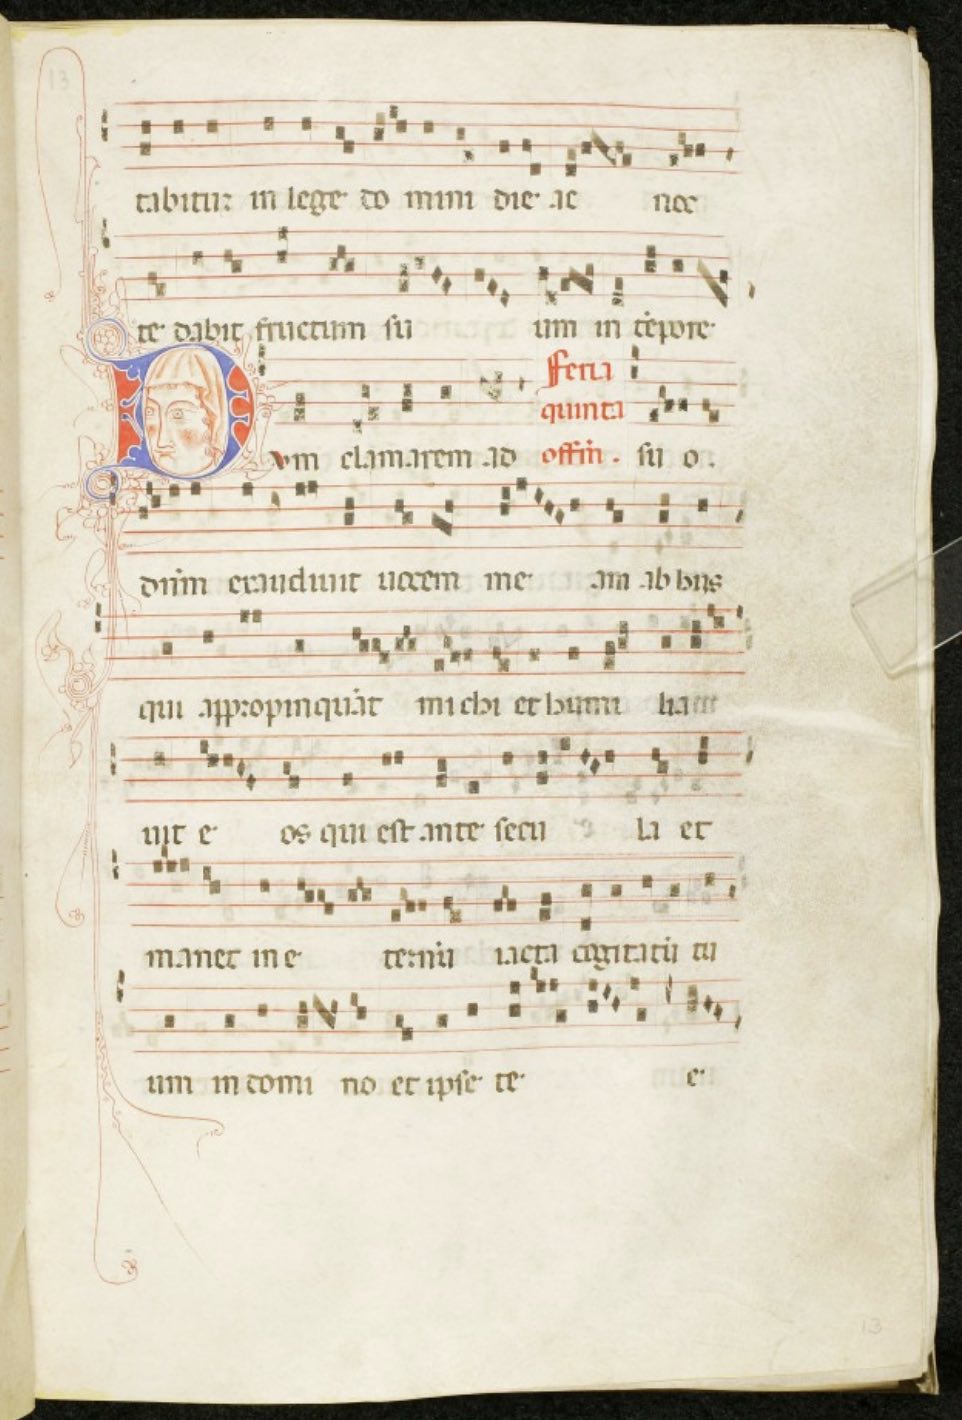 13
tabitur in lege do mini die ac noc
te dabit fructum su um in tēpore
Feria
quinta
Dvm clamarem ad offm̄. su o.
dn̄m exaudiuit uocem me am ab hiis
qui appropinquāt michi et humi liaui
uit e os qui est ante secu la et
manet in e ternū iacta cogitatū tu
um in domi no et ipse te e
13